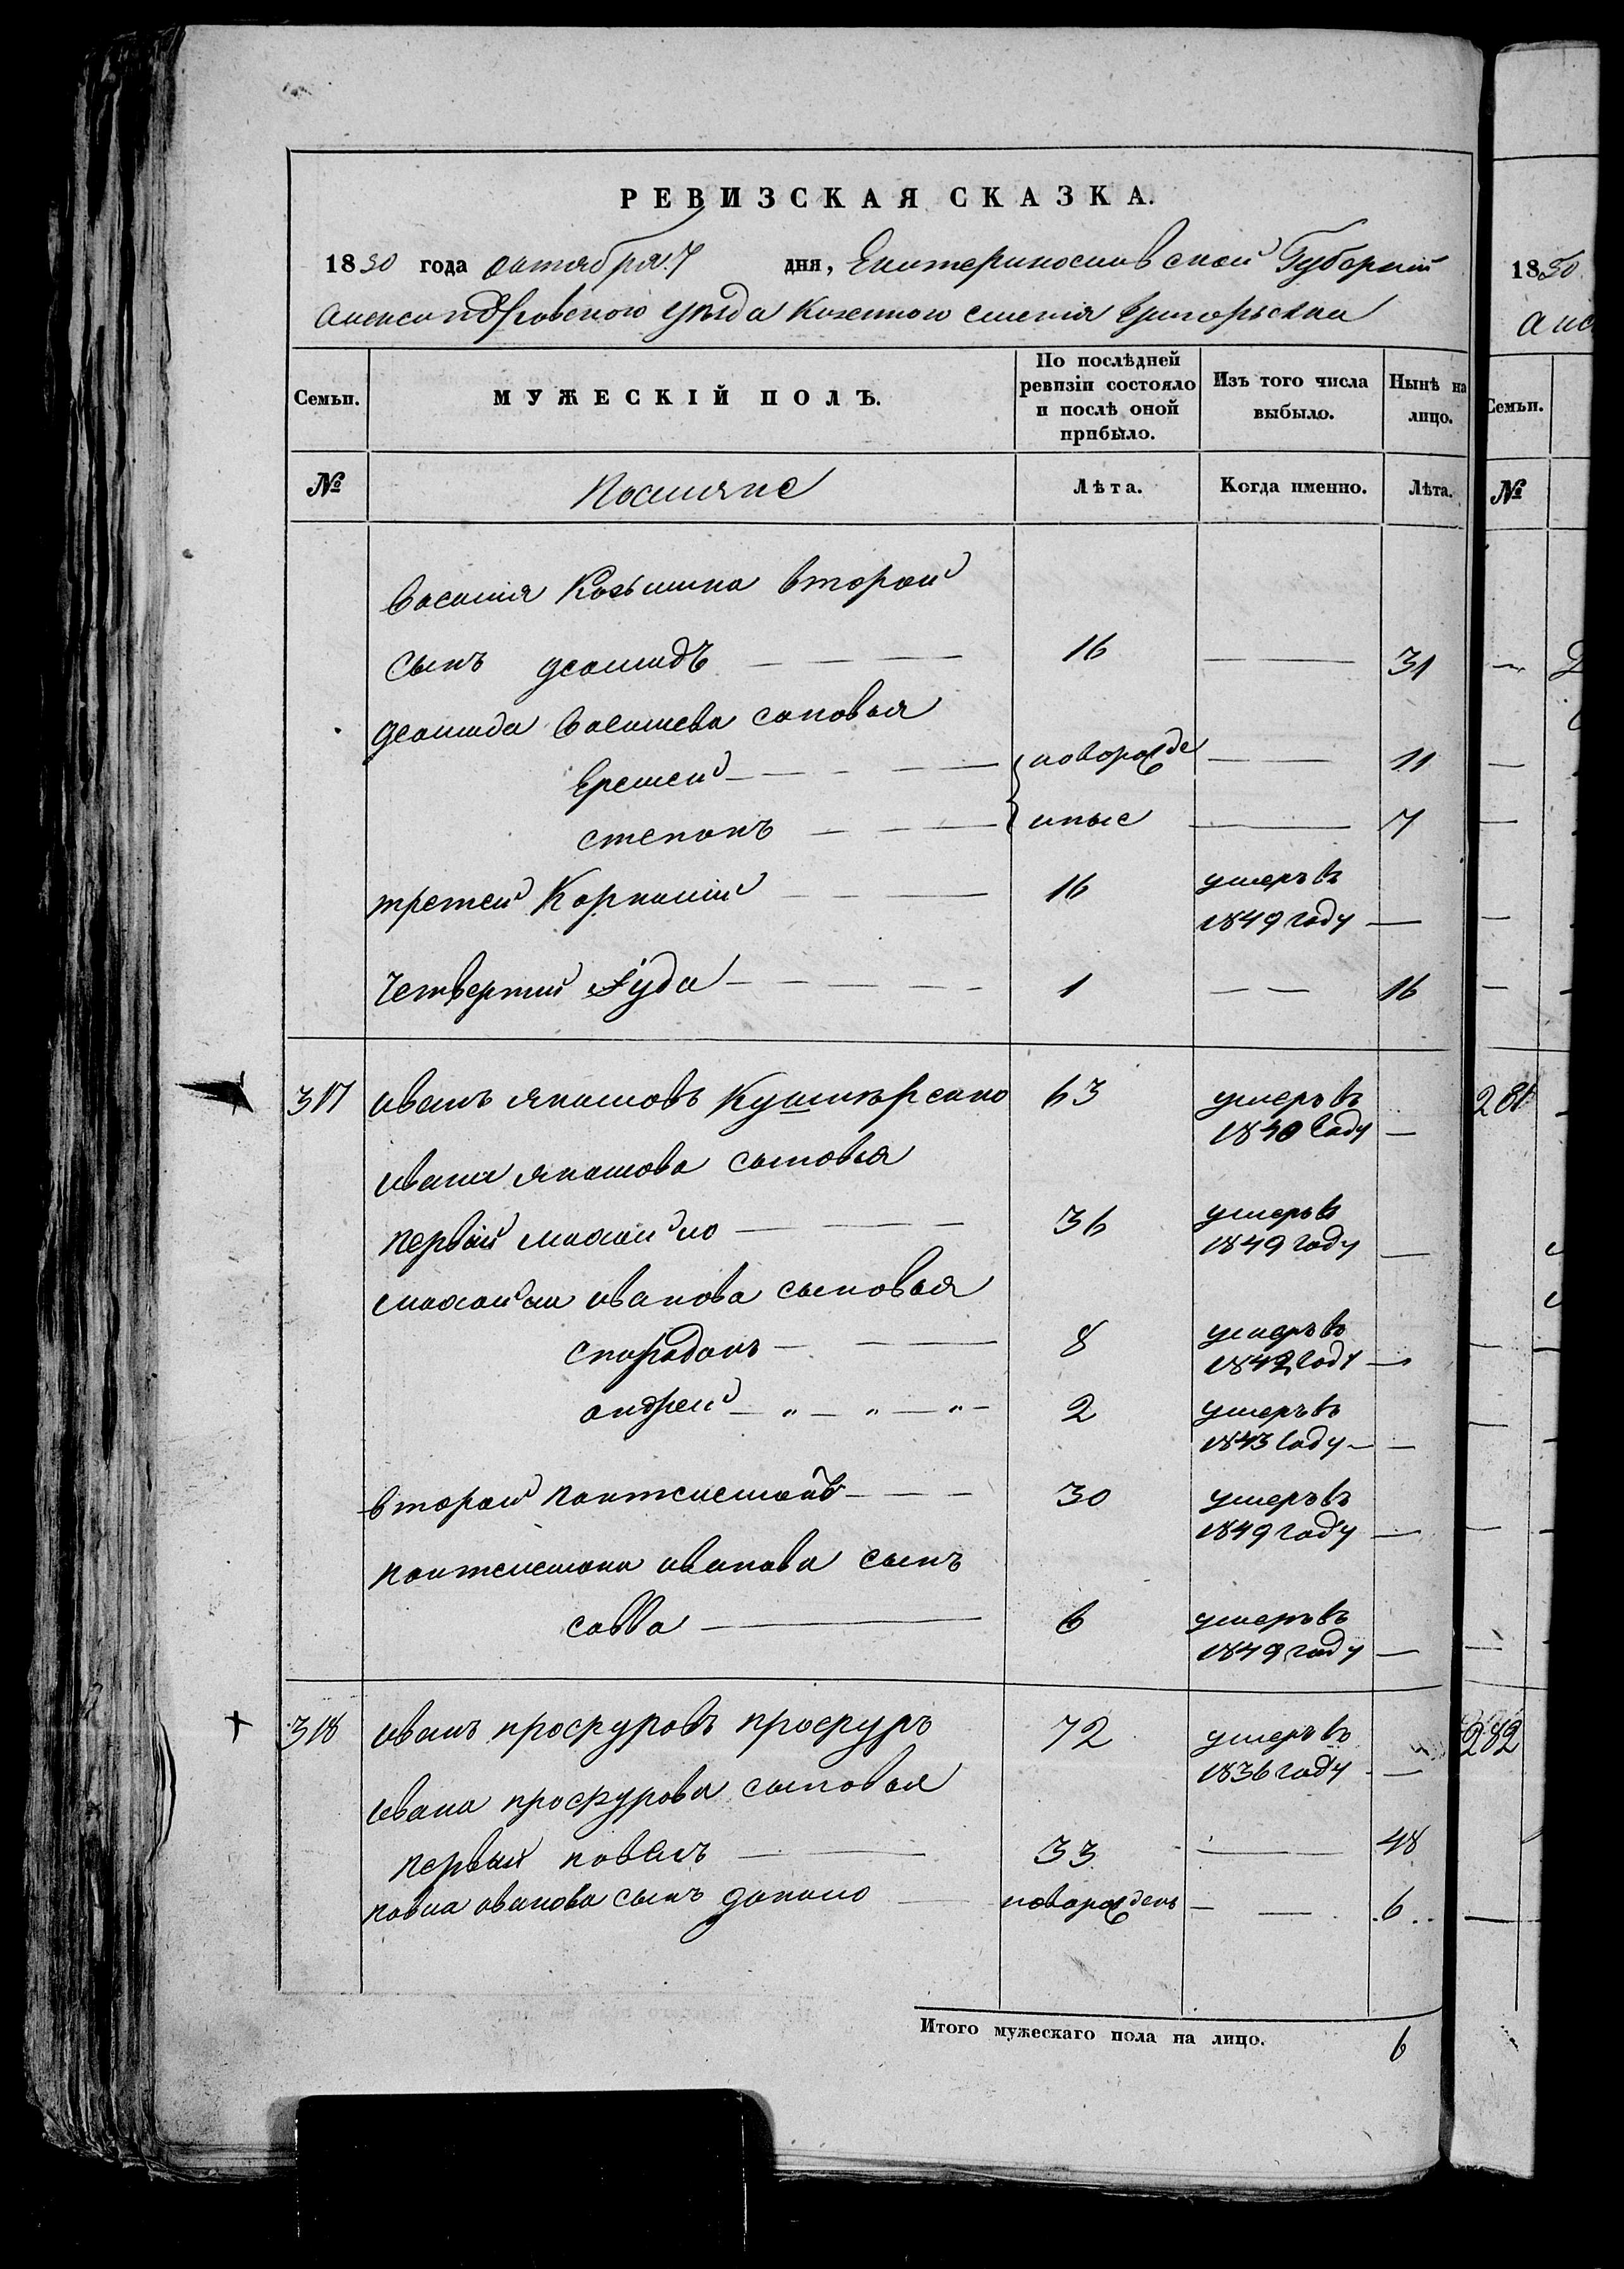 РЕВИЗСКАЯ СКАЗКА.
1850 года октября 7 дня, Екатеринославской Губернии
Александровского уезда Казенного селенія
Семьи. МУЖЕСКІЙ ПОЛЪ. По послѣдней ревизіи состояло и послѣ оной прибыло. Изъ того числа выбыло. Нынѣ на лицо.
№ Поселяне Лѣта. Когда именно. Лѣта.
Василія Козьмина второй
сынъ Деомидъ 16 — 31
Деомида Васильева сыновья
Еремей новорожде — 11
степанъ нные — 7
третей Корнилій 16 умеръ въ 1849 году —
Четвертий Іуда 1 — 16
317 иванъ якимовъ Кушнѣренко 63 умеръ въ 1840 году —
ивана якимова сыновья
первый михайло 36 умеръ въ 1849 году —
михайла иванова сыновья
спиридонъ 8 умеръ въ 1842 году —
андрей 2 умеръ въ 1843 году —
второй пантелемонъ 30 умеръ въ 1849 году —
пантелемона иванова сынъ
савва 6 умеръ въ 1849 году —
318 иванъ прокуровъ 72 умеръ въ 1836 году —
ивана сыновья
первый павелъ 33 — 48
павла иванова сынъ данило новорожденъ — 6
Итого мужескаго пола на лицо. 6
1850
Семьи.
№
281
282